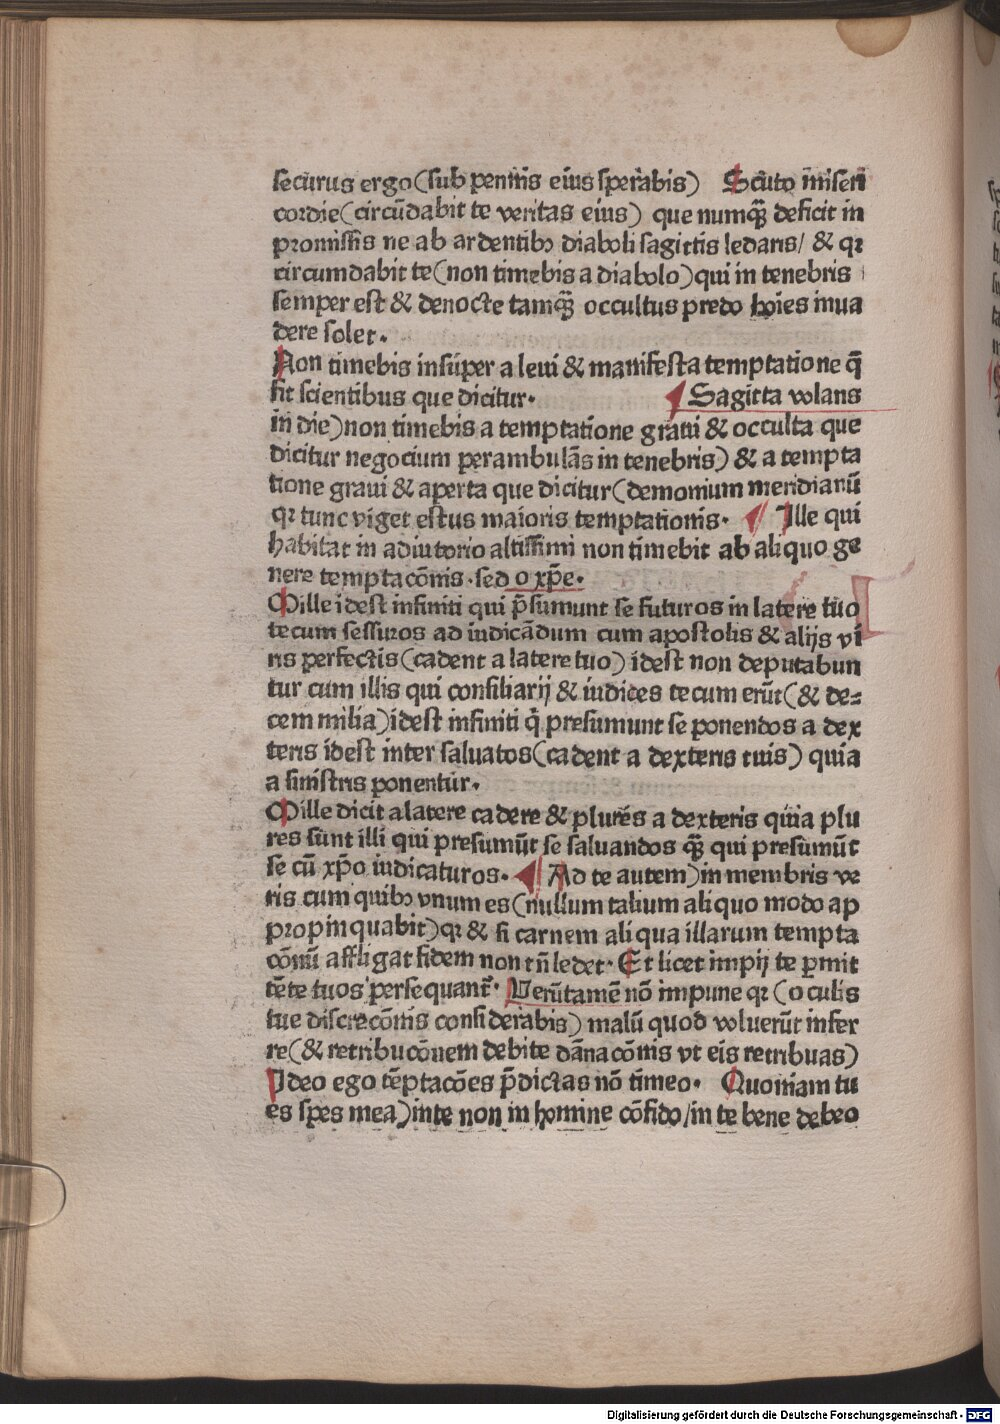 securus ergo (sub pennis eius sperabis) Scuto miseri
cordie (circūdabit te veritas eius) que numq̄ꝫ deficit in
promissis ne ab ardentibꝫ diaboli sagittis ledaris / & qꝛ
circumdabit te (non timebis a diabolo) qui in tenebris
semper est & denocte tamq̄ꝫ occultus predo hoīes inua
dere solet.
Non timebis insuper a leui & manifesta temptatione q̄
fit scientibus que dicitur. Sagitta volans
in die) non timebis a temptatione graui & occulta que
dicitur negocium perambulās in tenebris) & a tempta
tione graui & aperta que dicitur (demonium meridianū
qꝛ tunc viget estus maioris temptationis. Ille qui
habitat in adiutorio altissimi non timebit ab aliquo ge
nere temptacōnis. sed o xp̄e.
Mille idest infiniti qui p̄sumunt se futuros in latere tuo
tecum sessuros ad iudicādum cum apostolis & alijs vi
ris perfectis (cadent a latere tuo) idest non deputabun
tur cum illis qui consiliarij & iudices tecum erūt (& de=
cem milia) idest infiniti q̄ presumunt se ponendos a dex
teris idest inter saluatos (cadent a dexteris tuis) quia
a sinistris ponentur.
Mille dicit a latere cadere & plures a dexteris quia plu
res sunt illi qui presumūt se saluandos q̄ꝫ qui presumūt
se cū xp̄o iudicaturos. Ad te autem) in membris ve
ris cum quibꝫ vnum es (nullum talium aliquo modo ap
propinquabit) qꝛ & si carnem aliqua illarum tempta
cōnū affligat fidem non tn̄ ledet. Et licet impij te ꝑmit
tēte tuos persequant᷑. Verūtamē nō impune qꝛ (oculis
tue discrecōnis considerabis) malū quod voluerūt infer
re (& retribucōnem debite dānacōnis vt eis retribuas)
Ideo ego tēptacōes p̄dictas nō timeo. Quoniam tu
es spes mea) in te non in homine cōfido / in te bene debeo
Digitalisierung gefördert durch die Deutsche Forschungsgemeinschaft - DFG